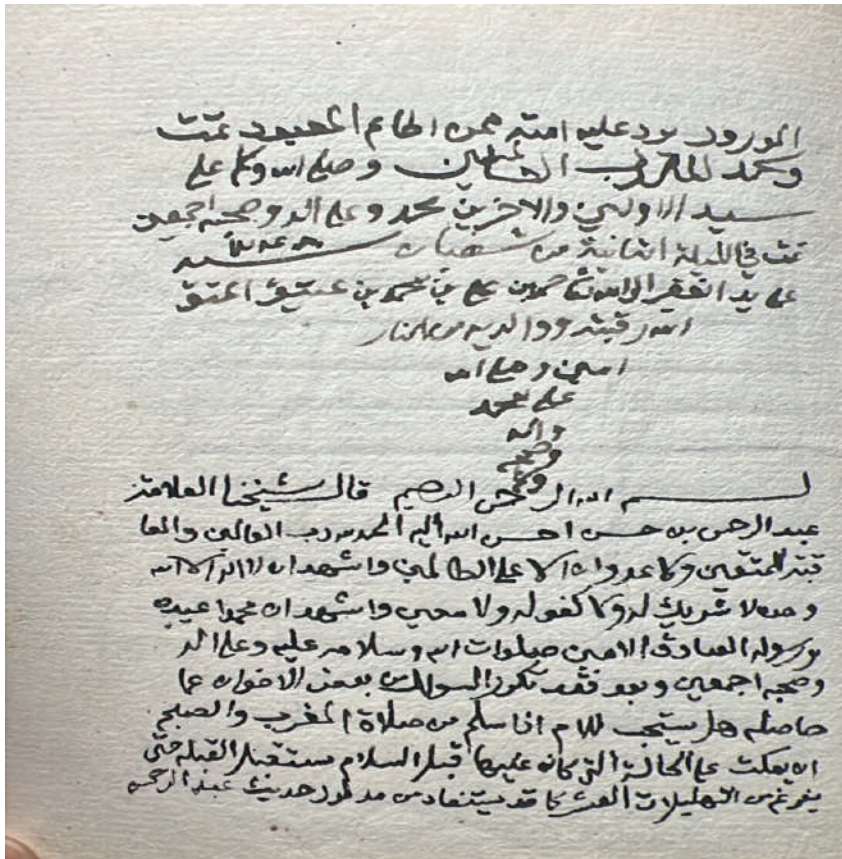 المورود يرد عليه امته ممن اطاع المعبود تمت
والحمد لله رب العالمين وصلى الله وسلم على
سيد الاولين والاخرين محمد وعلى اله وصحبه اجمعين
تمت في الليلة الثانية من شعبان سنة
على يد الفقير الى الله حمد بن علي بن محمد بن عتيق اعتق
الله رقبته ووالديه من النار
امين وصلى الله
على محمد
واله
وصحبه
وسلم
بسم الله الرحمن الرحيم قال شيخنا العلامة
عبد الرحمن بن حسن احسن الله اليه الحمد لله رب العالمين والعا
قبة للمتقين ولا عدوان الا على الظالمين واشهد ان لا اله الا الله
وحده لا شريك له ولا كفو له ولا معين واشهد ان محمدا عبده
ورسوله الصادق الامين صلوات الله وسلامه عليه وعلى اله
وصحبه اجمعين وبعد فقد تكرر السوال من بعض الاخوان عما
حاصله هل يستحب للامام اذا سلم من صلاة المغرب والصبح
ان يمكث على الحالة التي كان عليها قبل السلام مستقبل القبلة حتى
يفرغ من التهليلات العشر كما قد يستفاد من مدلول حديث عبد الرحمن